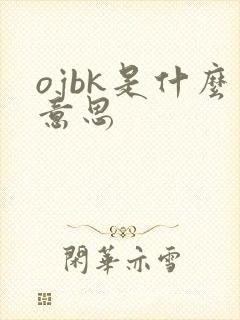 ojbk是什麼
意思
閑華亦雪